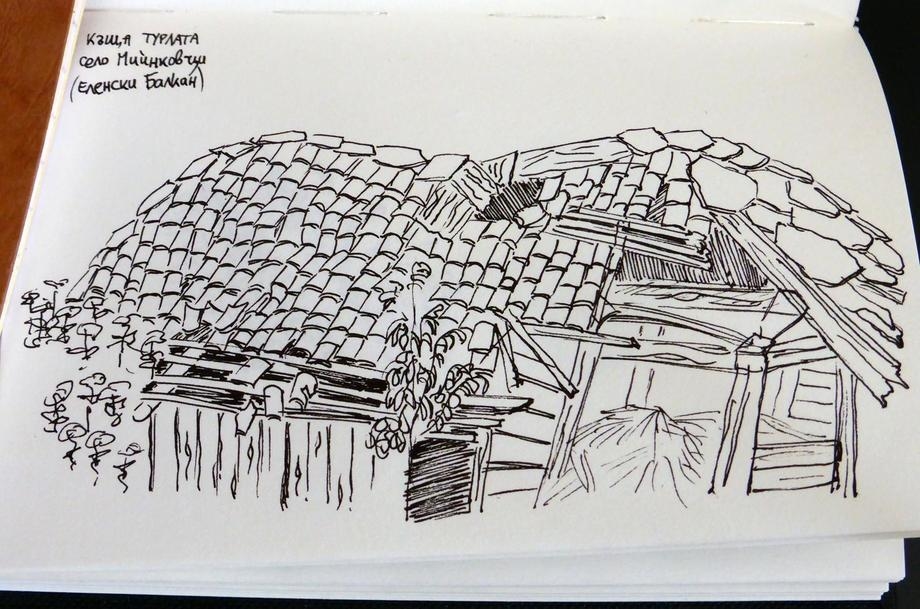 КЪЩА ТУРЛАТА
село Мийнковци
(Еленски Балкан)